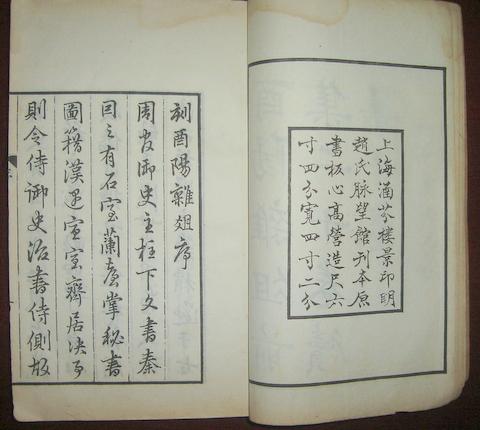 上海涵芬樓景印明
趙氏脈望館刊本原
書板心高營造尺六
寸四分寬四寸二分
刻酉陽雜俎序
周官御史主柱下文書秦
囙之有石室蘭臺掌秘書
圖籍漢宣室齋居決事
則令侍御史治書侍側故